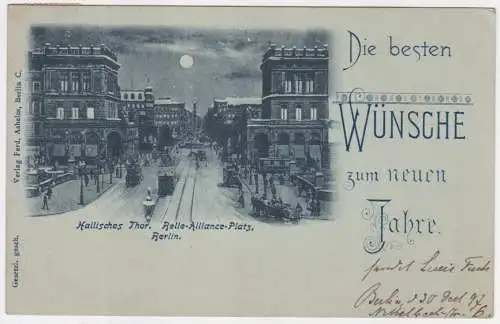 Verlag Ferd. Ashelm, Berlin C.
Gesetzl. gesch.
Hallisches Thor. Belle-Alliance-Platz.
Berlin.
Die besten
WÜNSCHE
zum neuen
Jahre.
sendet Lucie Fuchs
Berlin, d 30 Dect 97